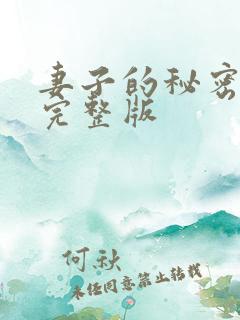 妻子的秘密
完整版
何秋
未经同意禁止转载